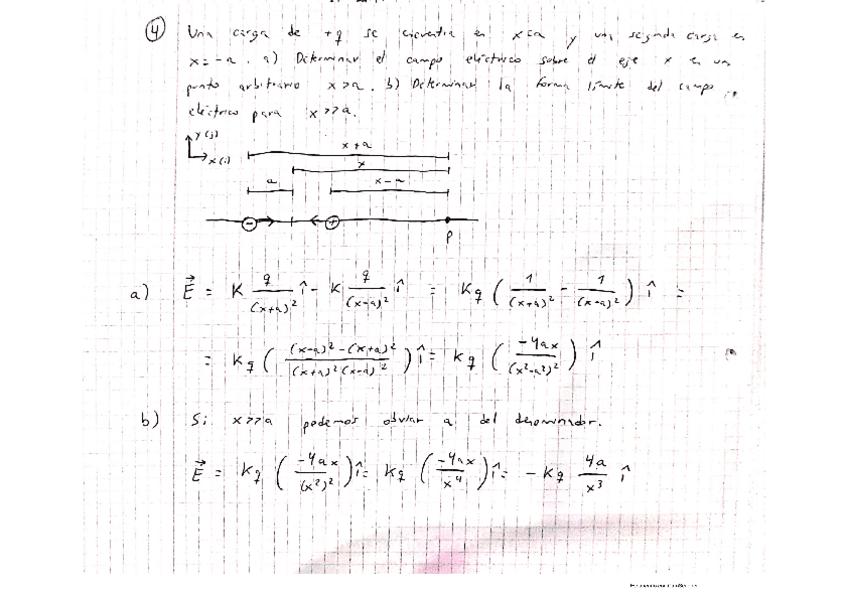 ④ Una carga de +q se encuentra en x=a y una segunda carga en
x=-a. a) Determinar el campo eléctrico sobre el eje x en un
punto arbitrario x>a. b) Determinar la forma límite del campo
eléctrico para x>>a.
y(j)
x(i)
x+a
x
a
x-a
- +
P
a) E⃗ = K q/(x+a)² î - K q/(x-a)² î = Kq (1/(x+a)² - 1/(x-a)²) î =
= Kq ((x-a)²-(x+a)²/(x+a)²(x-a)²) î = Kq (-4ax/(x²-a²)²) î
b) Si x>>a podemos obviar a del denominador.
E⃗ = Kq (-4ax/(x²)²) î = Kq (-4ax/x⁴) î = - Kq 4a/x³ î